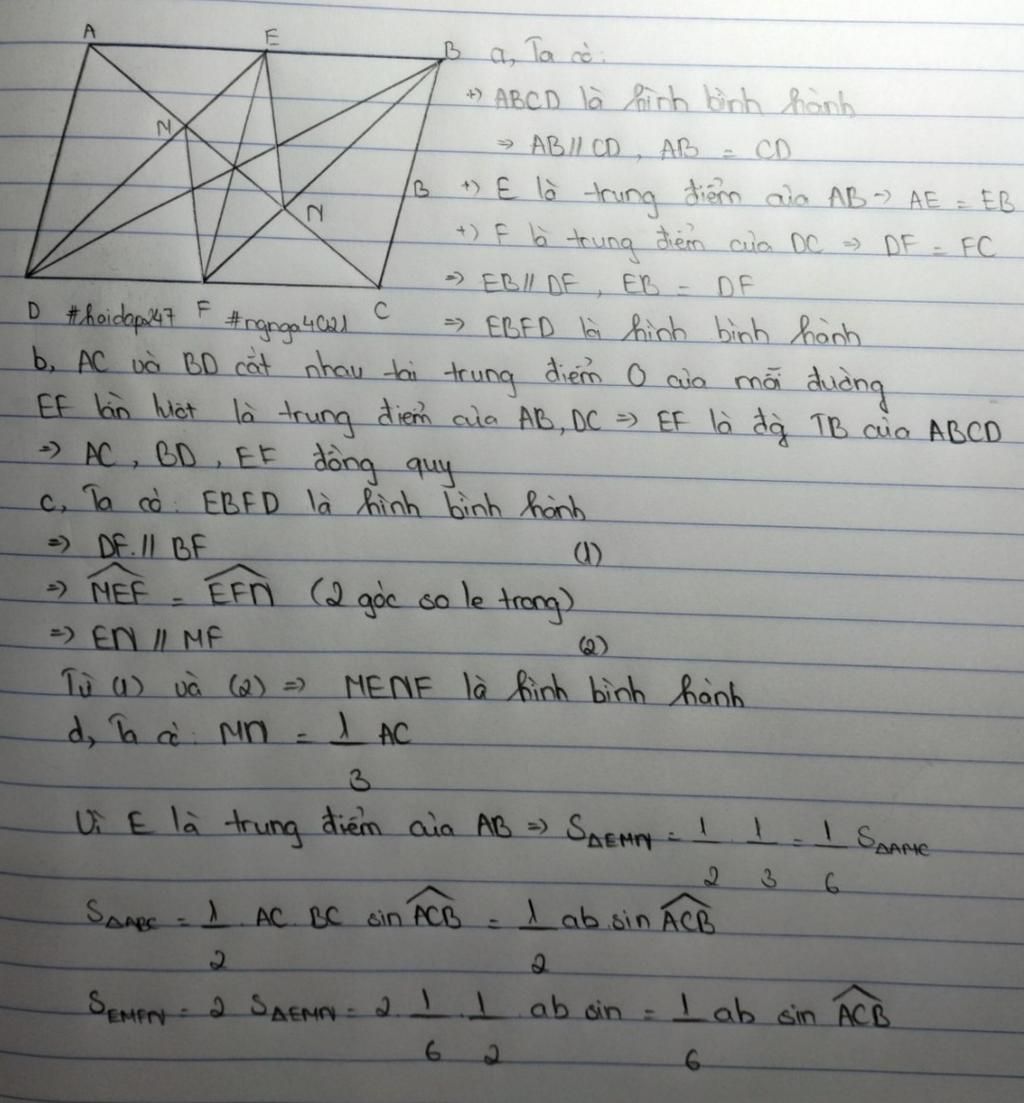 A E B
N
B
N
D #hoidap247 F #ngnga4021 C
a, Ta có:
+) ABCD là hình bình hành
=> AB // CD, AB = CD
+) E là trung điểm của AB -> AE = EB
+) F là trung điểm của DC => DF = FC
=> EB // DF, EB = DF
=> EBFD là hình bình hành
b, AC và BD cắt nhau tại trung điểm O của mỗi đường
EF lần lượt là trung điểm của AB, DC => EF là đg TB của ABCD
=> AC, BD, EF đồng quy
c, Ta có: EBFD là hình bình hành
=> DF // BF (1)
=> MEF = EFN (2 góc so le trong)
=> EN // MF (2)
Từ (1) và (2) => MENF là hình bình hành
d, Ta có: MN = 1/3 AC
Vì E là trung điểm của AB => SΔEMN = 1/2 . 1/3 = 1/6 SΔAMC
SΔABC = 1/2 . AC. BC sin ACB = 1/2 ab.sin ACB
SEMFN = 2 SΔEMN = 2. 1/6 . 1/2 . ab sin = 1/6 ab sin ACB